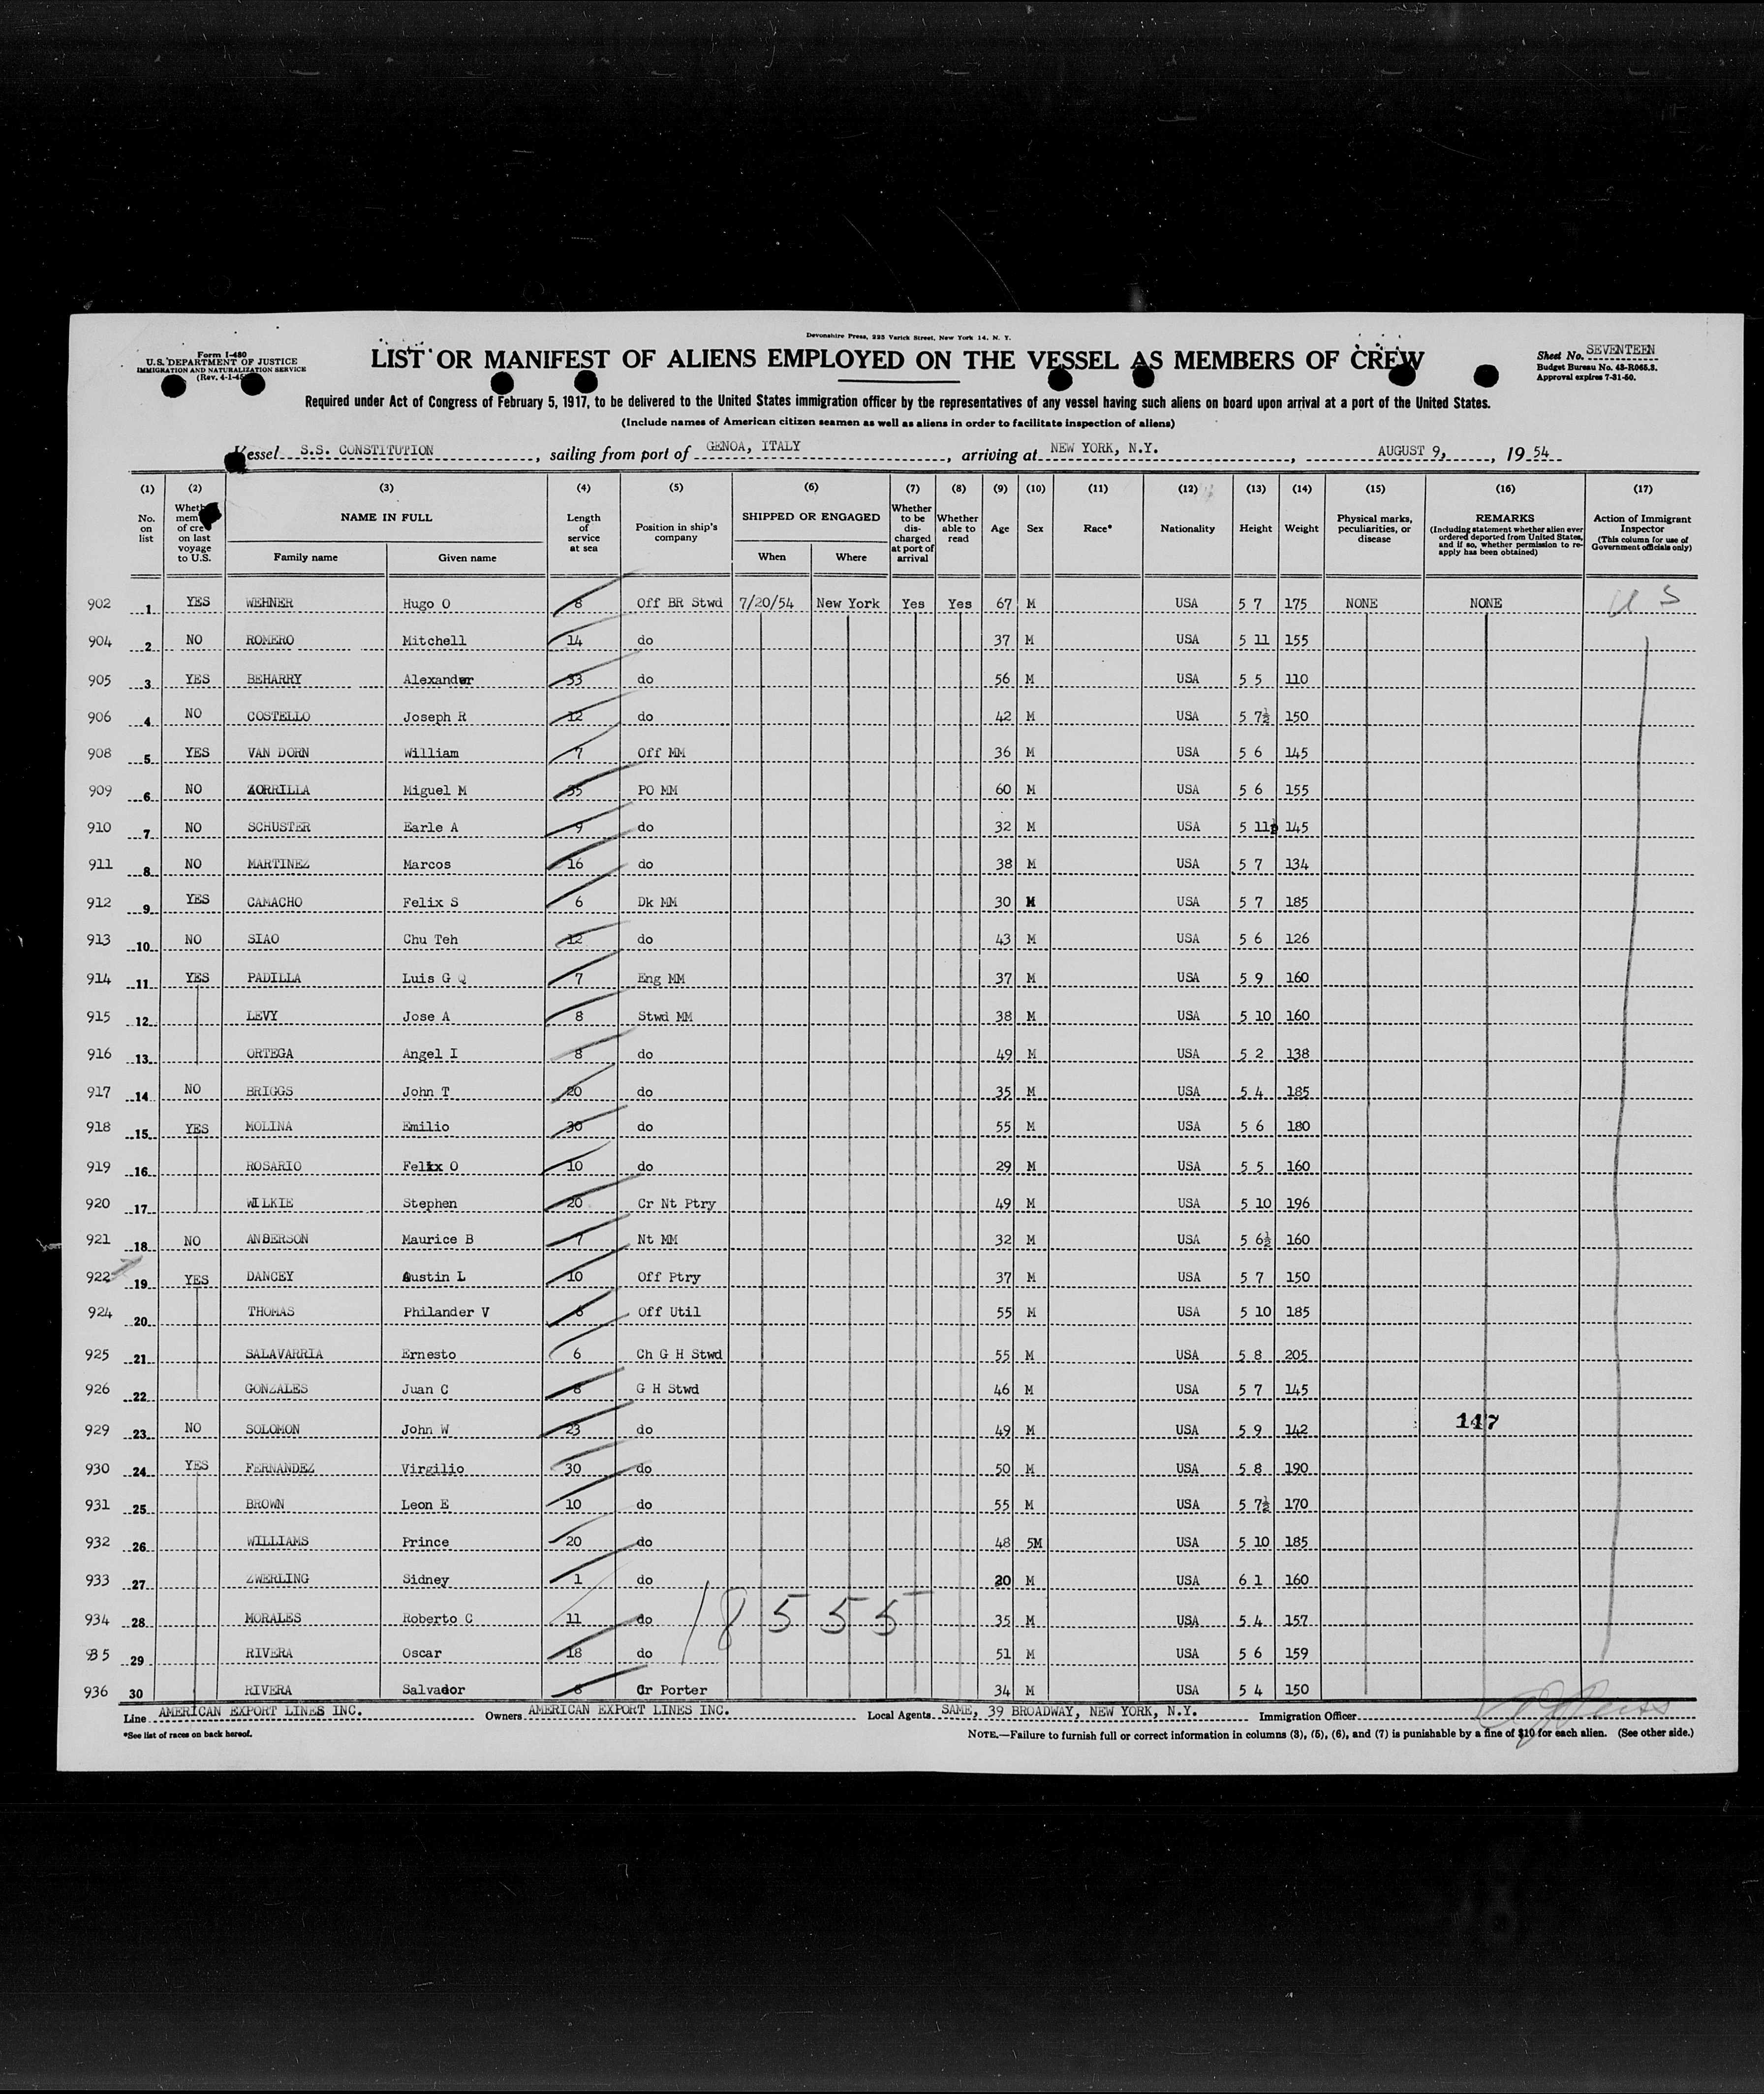 Devonshire Press, 225 Varick Street, New York 14, N. Y.
Form I-480
U.S. DEPARTMENT OF JUSTICE
IMMIGRATION AND NATURALIZATION SERVICE
(Rev. 4-1-45)
LIST OR MANIFEST OF ALIENS EMPLOYED ON THE VESSEL AS MEMBERS OF CREW
Sheet No. SEVENTEEN
Budget Bureau No. 43-R065.3.
Approval expires 7-31-50.
Required under Act of Congress of February 5, 1917, to be delivered to the United States immigration officer by the representatives of any vessel having such aliens on board upon arrival at a port of the United States.
(Include names of American citizen seamen as well as aliens in order to facilitate inspection of aliens)
Vessel S.S. CONSTITUTION, sailing from port of GENOA, ITALY, arriving at NEW YORK, N.Y., AUGUST 9, 19 54
(1) (2) (3) (4) (5) (6) (7) (8) (9) (10) (11) (12) (13) (14) (15) (16) (17)
No. on list
of crew on last voyage to U.S.
NAME IN FULL
Family name
Given name
Length of service at sea
Position in ship's company
SHIPPED OR ENGAGED
When
Where
Whether to be discharged at port of arrival
Whether able to read
Age
Sex
Race*
Nationality
Height
Weight
Physical marks, peculiarities, or disease
REMARKS
(Including statement whether alien ever ordered deported from United States, and if so, whether permission to reapply has been obtained)
Action of Immigrant Inspector
(This column for use of Government officials only)
902 1 YES WEHNER Hugo O 8 Off BR Stwd 7/20/54 New York Yes Yes 67 M USA 5 7 175 NONE NONE U S
904 2 NO ROMERO Mitchell 14 do 37 M USA 5 11 155
905 3 YES BEHARRY Alexander 33 do 56 M USA 5 5 110
906 4 NO COSTELLO Joseph R 12 do 42 M USA 5 7½ 150
908 5 YES VAN DORN William 7 Off MM 36 M USA 5 6 145
909 6 NO ZORRILLA Miguel M 35 PO MM 60 M USA 5 6 155
910 7 NO SCHUSTER Earle A 9 do 32 M USA 5 11½ 145
911 8 NO MARTINEZ Marcos 16 do 38 M USA 5 7 134
912 9 YES CAMACHO Felix S 6 Dk MM 30 M USA 5 7 185
913 10 NO SIAO Chu Teh 12 do 43 M USA 5 6 126
914 11 YES PADILLA Luis G Q 7 Eng MM 37 M USA 5 9 160
915 12 LEVY Jose A 8 Stwd MM 38 M USA 5 10 160
916 13 ORTEGA Angel I 8 do 49 M USA 5 2 138
917 14 NO BRIGGS John T 20 do 35 M USA 5 4 185
918 15 YES MOLINA Emilio 30 do 55 M USA 5 6 180
919 16 ROSARIO Felix O 10 do 29 M USA 5 5 160
920 17 WILKIE Stephen 20 Cr Nt Ptry 49 M USA 5 10 196
921 18 NO ANDERSON Maurice B 7 Nt MM 32 M USA 5 6½ 160
922 19 YES DANCEY Austin L 10 Off Ptry 37 M USA 5 7 150
924 20 THOMAS Philander V 6 Off Util 55 M USA 5 10 185
925 21 SALAVARRIA Ernesto 6 Ch G H Stwd 55 M USA 5 8 205
926 22 GONZALES Juan C 8 G H Stwd 46 M USA 5 7 145
929 23 NO SOLOMON John W 23 do 49 M USA 5 9 142 147
930 24 YES FERNANDEZ Virgilio 30 do 50 M USA 5 8 190
931 25 BROWN Leon E 10 do 55 M USA 5 7½ 170
932 26 WILLIAMS Prince 20 do 48 5M USA 5 10 185
933 27 ZWERLING Sidney 1 do 20 M USA 6 1 160
934 28 MORALES Roberto C 11 do 35 M USA 5 4 157
18555
935 29 RIVERA Oscar 18 do 51 M USA 5 6 159
936 30 RIVERA Salvador 8 Cr Porter 34 M USA 5 4 150
Line AMERICAN EXPORT LINES INC. Owners AMERICAN EXPORT LINES INC. Local Agents SAME, 39 BROADWAY, NEW YORK, N.Y. Immigration Officer
*See list of races on back hereof.
NOTE.—Failure to furnish full or correct information in columns (3), (5), (6), and (7) is punishable by a fine of $10 for each alien. (See other side.)